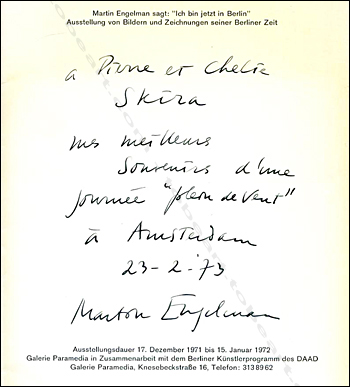 Martin Engelman sagt: "Ich bin jetzt in Berlin"
Ausstellung von Bildern und Zeichnungen seiner Berliner Zeit
a Pierre et
Skira
mes meilleurs
Souvenirs d'une
journée "plein de vent"
à Amsterdam
23-2-73
Martin Engelman
Ausstellungsdauer 17. Dezember 1971 bis 15. Januar 1972
Galerie Paramedia in Zusammenarbeit mit dem Berliner Künstlerprogramm des DAAD
Galerie Paramedia, Knesebeckstraße 16, Telefon: 3138962